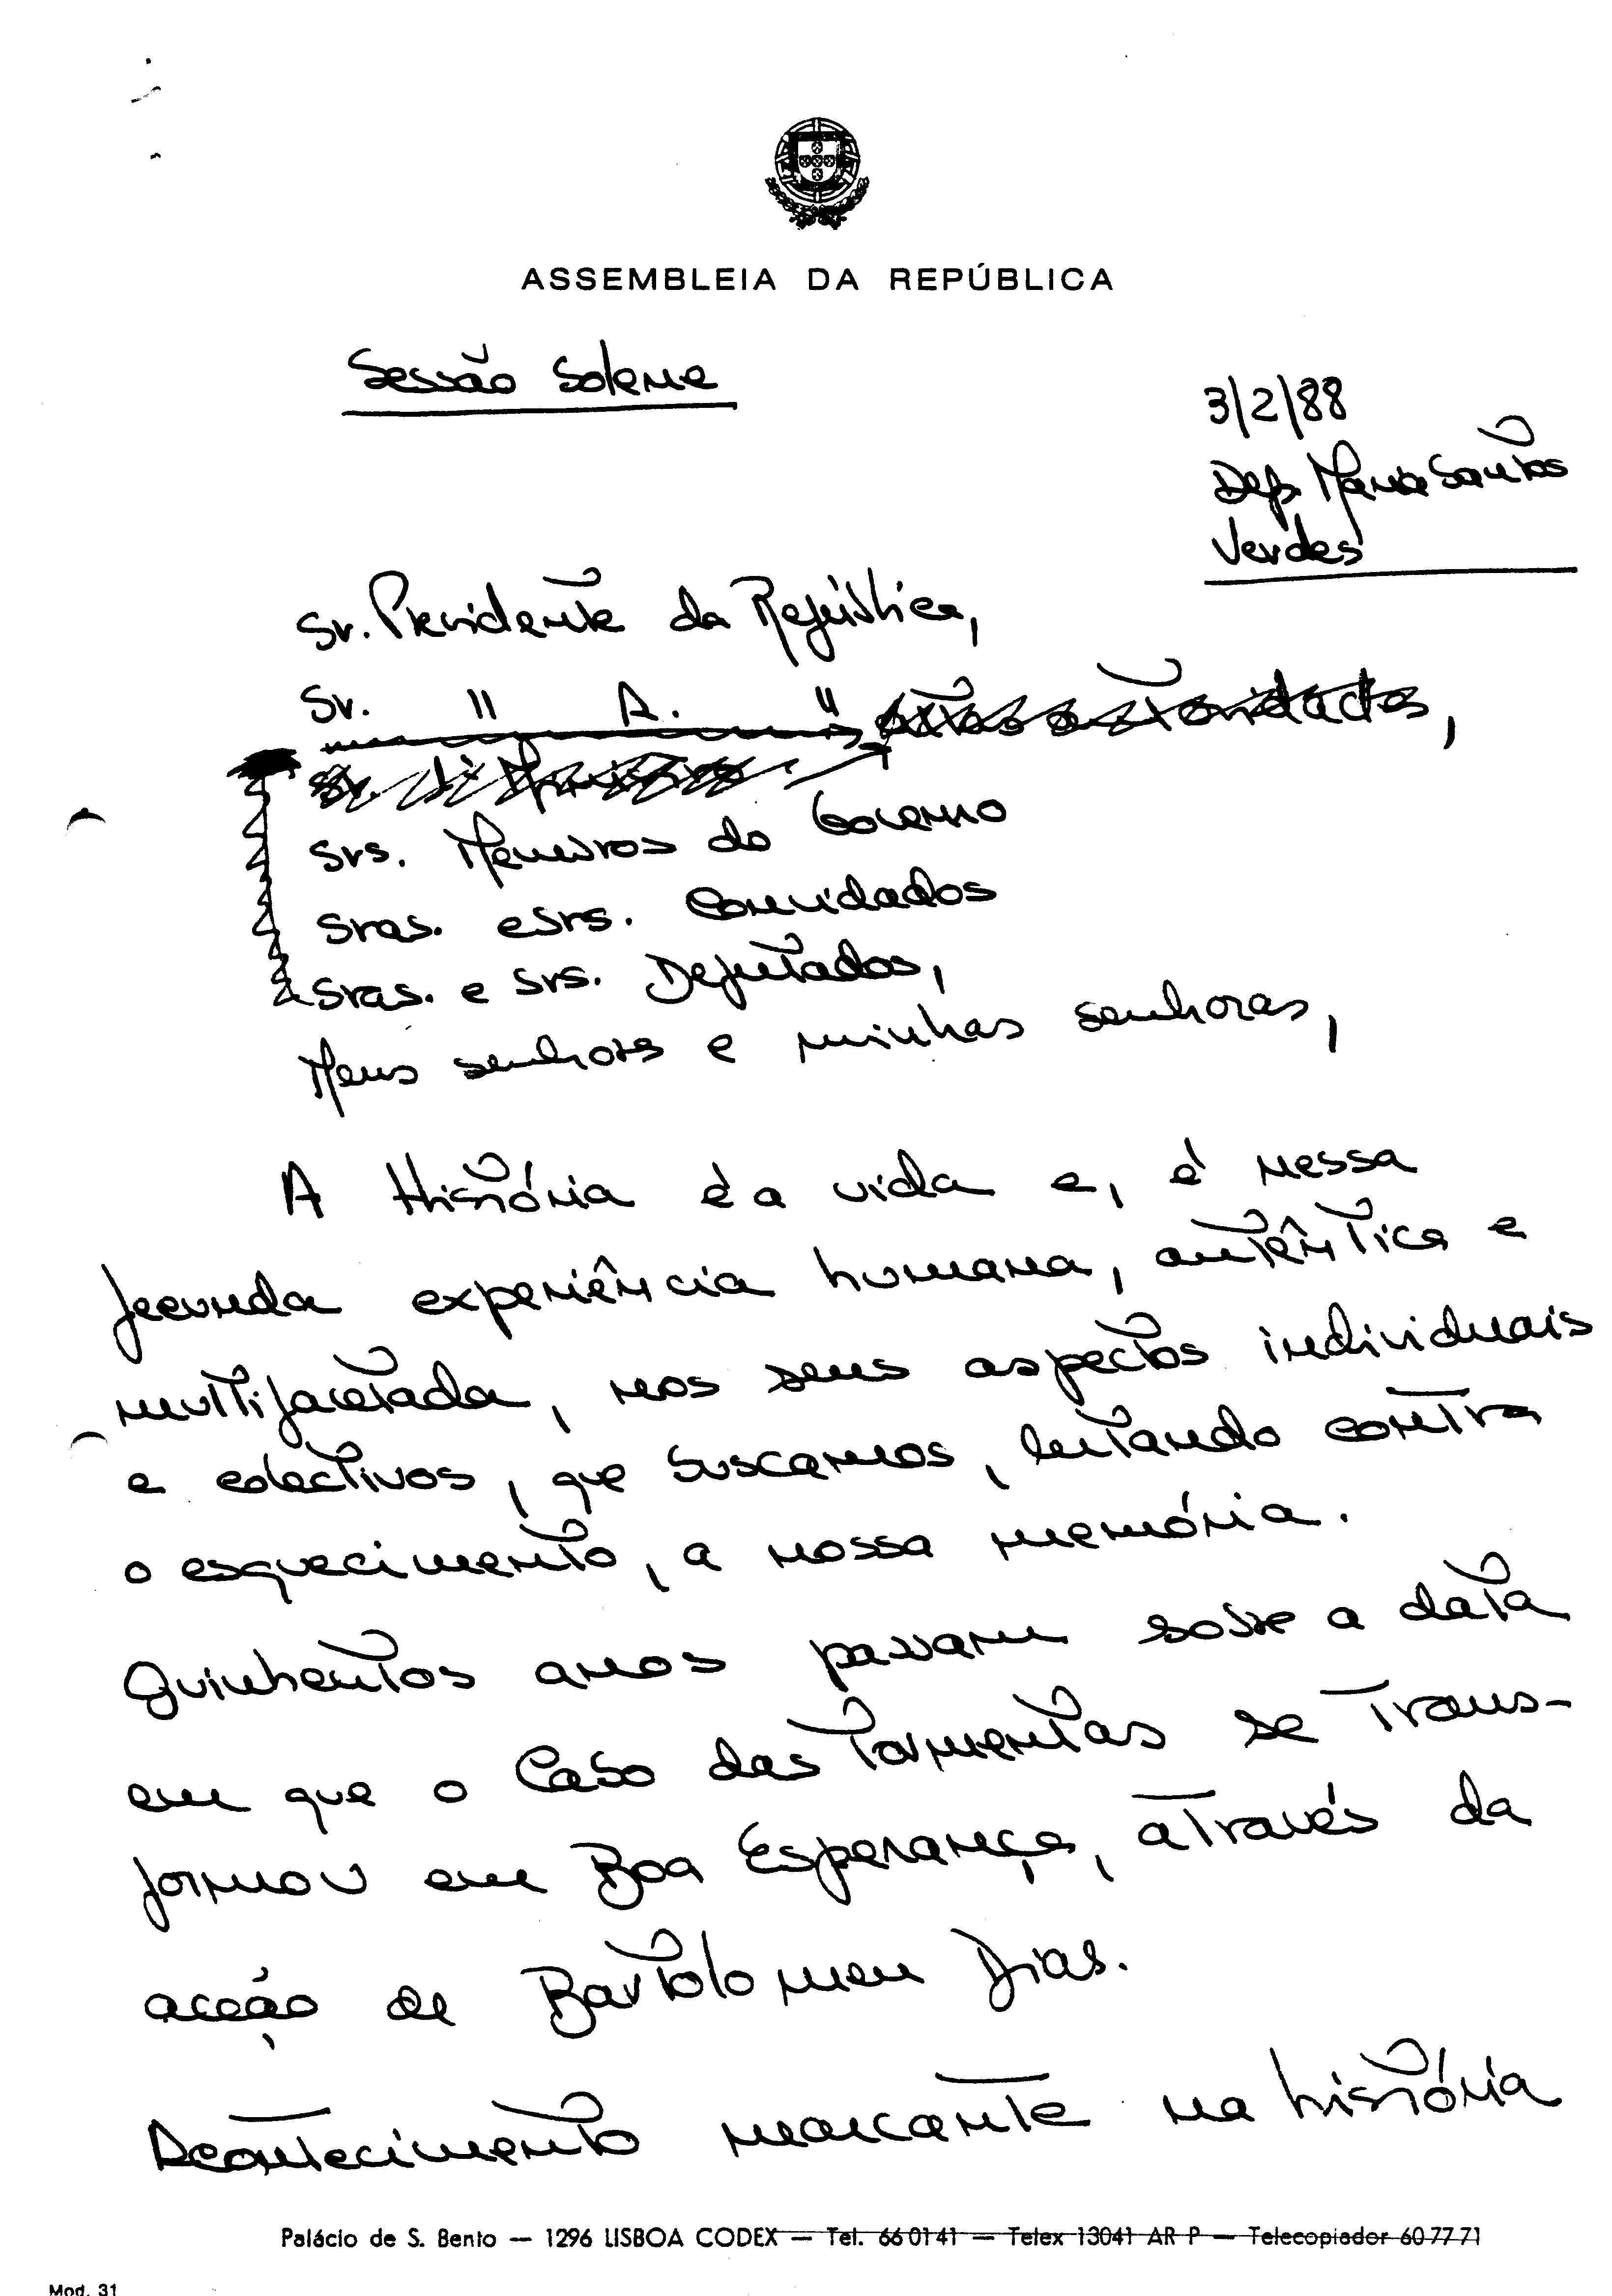 ASSEMBLEIA DA REPÚBLICA
Sessão Solene
3/2/88
Dep. Maria Santos
Verdes
Sr. Presidente da República,
Sr. " A. " altas autoridades,
Sr. 1º Ministro
Srs. Membros do Governo
Sras. e Srs. Convidados
Sras. e Srs. Deputados,
Meus senhores e minhas senhoras,
A História é a vida e, é nessa
fecunda experiência humana, autêntica e
multifacetada, nos seus aspectos individuais
e colectivos, que buscamos, lutando contra
o esquecimento, a nossa memória.
Quinhentos anos passam sobre a data
em que o Cabo das Tormentas se trans-
formou em Boa Esperança, através da
acção de Bartolomeu Dias.
Acontecimento marcante na história
Palácio de S. Bento — 1296 LISBOA CODEX — Tel. 66 01 41 — Telex 13041 AR P — Telecopiador 60 77 71
Mod. 31